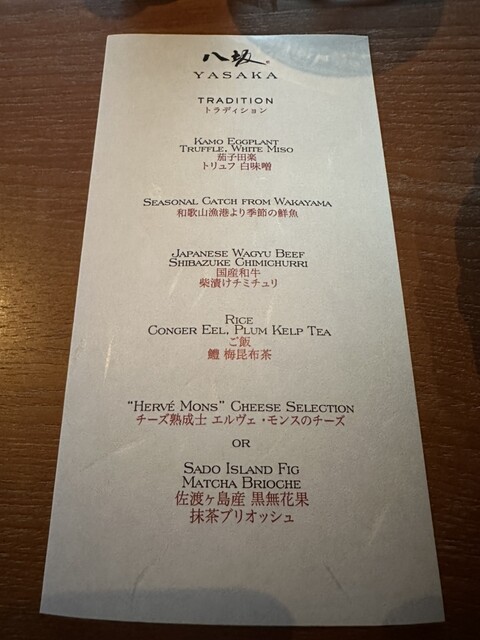 八坂
YASAKA
TRADITION
トラディション
KAMO EGGPLANT
TRUFFLE, WHITE MISO
茄子田楽
トリュフ 白味噌
SEASONAL CATCH FROM WAKAYAMA
和歌山漁港より季節の鮮魚
JAPANESE WAGYU BEEF
SHIBAZUKE CHIMICHURRI
国産和牛
柴漬けチミチュリ
RICE
CONGER EEL, PLUM KELP TEA
ご飯
鱧 梅昆布茶
“HERVÉ MONS” CHEESE SELECTION
チーズ熟成士 エルヴェ・モンスのチーズ
OR
SADO ISLAND FIG
MATCHA BRIOCHE
佐渡ヶ島産 黒無花果
抹茶ブリオッシュ